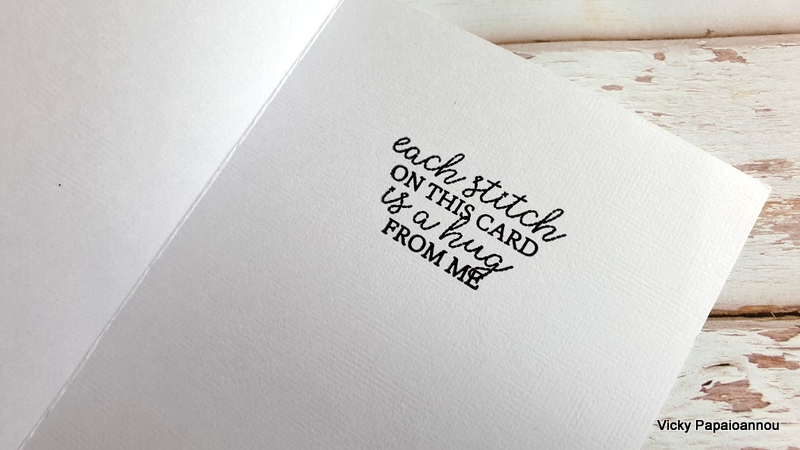 each stitch
ON THIS CARD
is a hug
FROM ME
Vicky Papaioannou